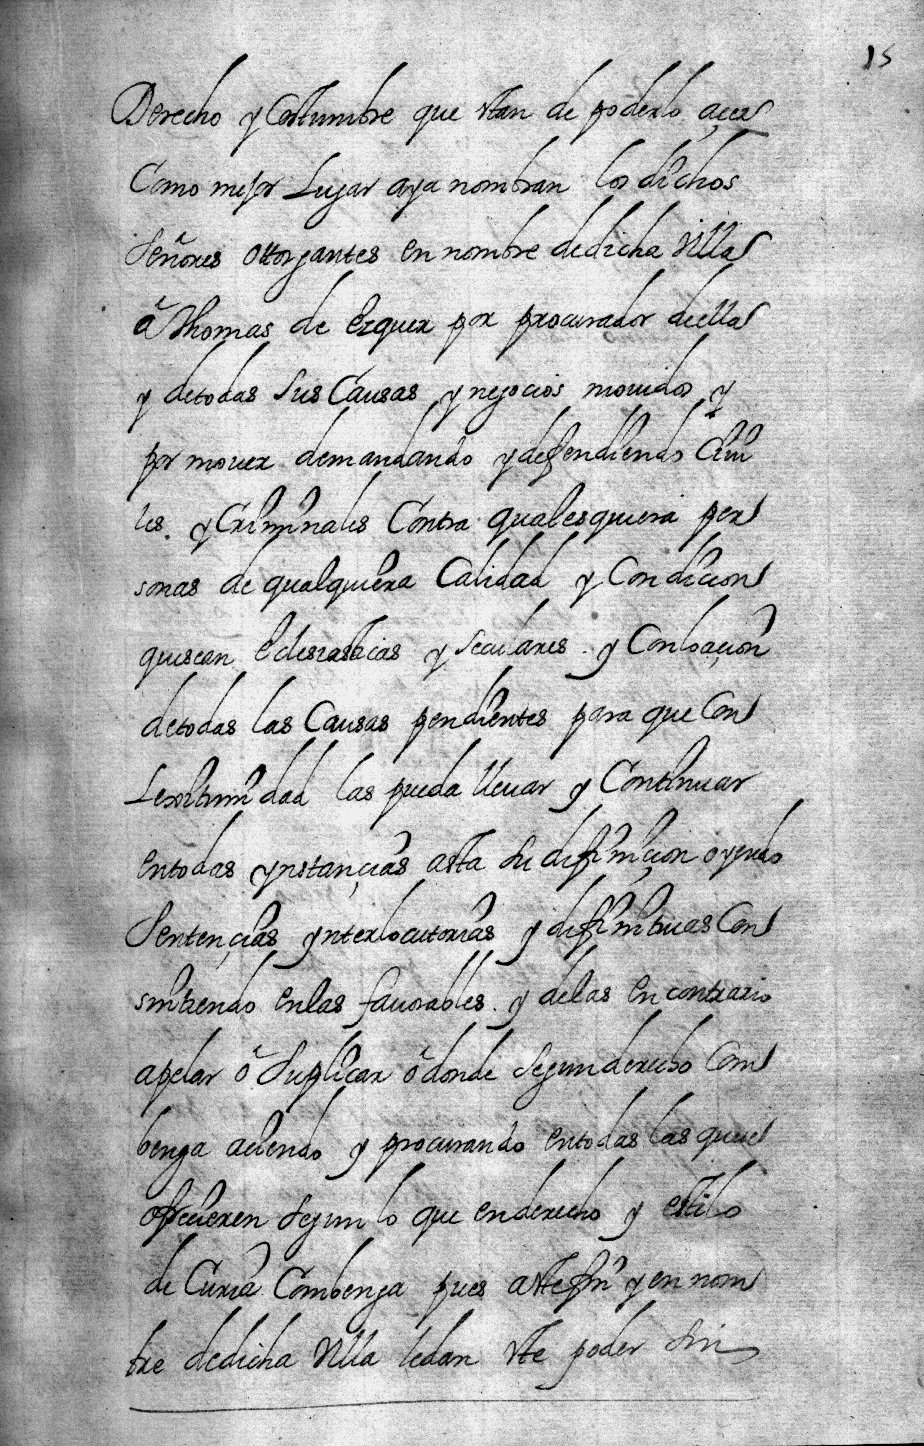 15
Derecho y Costumbre que stan de poderlo açer
Como mejor Lugar aya nombran los dichos
Señores otorgantes en nombre dedicha villa
â Thomas de Ezquer por procurador della
y detodas sus Causas y negocios mouidos y
por mouer demandando y defendiendo Ciui
les. y Criminales Contra qualesquiera per
sonas de qualquiera Calidad y Condicion
quesean Eclesiasticas y Seculares. y Conloaçion
detodas las Causas pendientes para que Con
Lexitimidad las pueda lleuar y Continuar
entodas ynstançias asta su difiniçion oyendo
Sentençias ynterlocutorias y difinitiuas Con
sintiendo enlas fauorables. y delas en contrario
apelar ô Suplicar ô donde Segun derecho Com
benga aciendo y procurando entodas las que se
ofrecieren Segun lo que enderecho y estilo
de Curia Combenga pues aste fin y en nom
bre dedicha villa ledan ste poder Sin